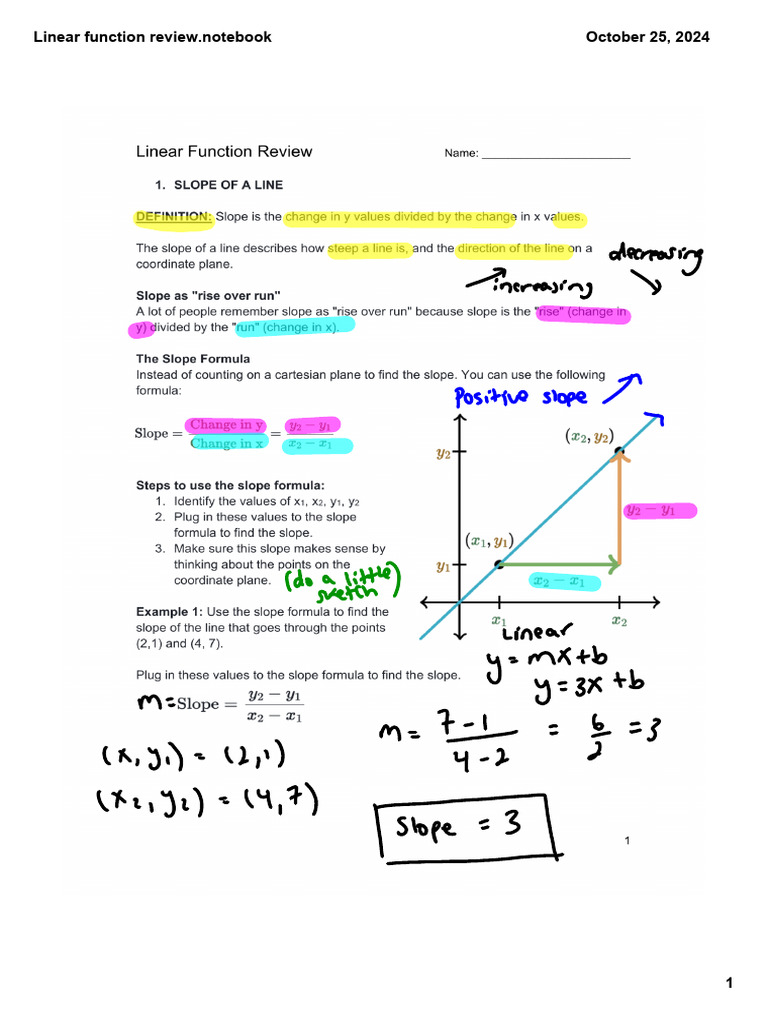 Linear function review.notebook
October 25, 2024
Linear Function Review
Name: ______________________
1. SLOPE OF A LINE
DEFINITION: Slope is the change in y values divided by the change in x values.
The slope of a line describes how steep a line is, and the direction of the line on a
coordinate plane.
decreasing
increasing
Slope as "rise over run"
A lot of people remember slope as "rise over run" because slope is the "rise" (change in
y) divided by the "run" (change in x).
The Slope Formula
Instead of counting on a cartesian plane to find the slope. You can use the following
formula:
Positive slope
Slope = Change in y / Change in x = y₂ − y₁ / x₂ − x₁
(x₂, y₂)
y₂
y₂ − y₁
(x₁, y₁)
y₁
x₂ − x₁
x₁
x₂
Steps to use the slope formula:
1. Identify the values of x₁, x₂, y₁, y₂
2. Plug in these values to the slope
formula to find the slope.
3. Make sure this slope makes sense by
thinking about the points on the
coordinate plane.
(do a little
sketch)
Example 1: Use the slope formula to find the
slope of the line that goes through the points
(2,1) and (4, 7).
Linear
y = mx+b
y = 3x+b
Plug in these values to the slope formula to find the slope.
m= Slope = y₂ − y₁ / x₂ − x₁
m = 7-1 / 4-2 = 6/2 = 3
(x, y₁) = (2,1)
(x₂, y₂) = (4,7)
Slope = 3
1
1